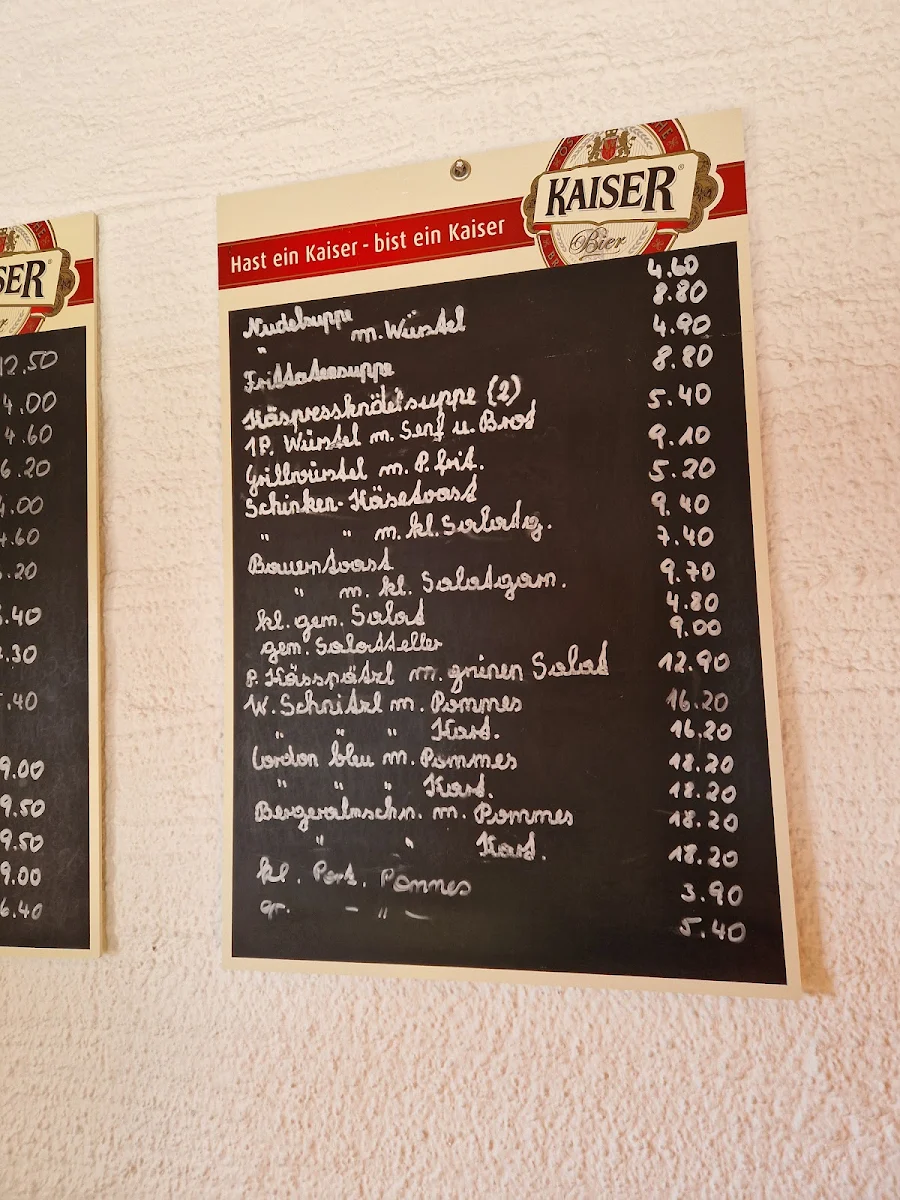 SER
12.50
4.00
4.60
6.20
4.00
4.60
.20
.40
.30
.40
9.00
9.50
9.50
9.00
6.40
KAISER
Bier
Hast ein Kaiser - bist ein Kaiser
Nudelsuppe 4.60
" m. Würstel 8.80
Frittatensuppe 4.90
Käspressknödelsuppe (2) 8.80
1P. Würstel m. Senf u. Brot 5.40
Grillwürstel m. P. frit. 9.10
Schinken-Käsetoast 5.20
" " m. kl. Salatg. 9.40
Bauerntoast 7.40
" m. kl. Salatgarn. 9.70
kl. gem. Salat 4.80
gem. Salatteller 9.00
P. Kässpätzl m. grünen Salat 12.90
W. Schnitzl m. Pommes 16.20
" " " Kart. 16.20
Cordon bleu m. Pommes 18.20
" " " Kart. 18.20
Bergeralmschn. m. Pommes 18.20
" " Kart. 18.20
kl. Port. Pommes 3.90
gr. - " - 5.40